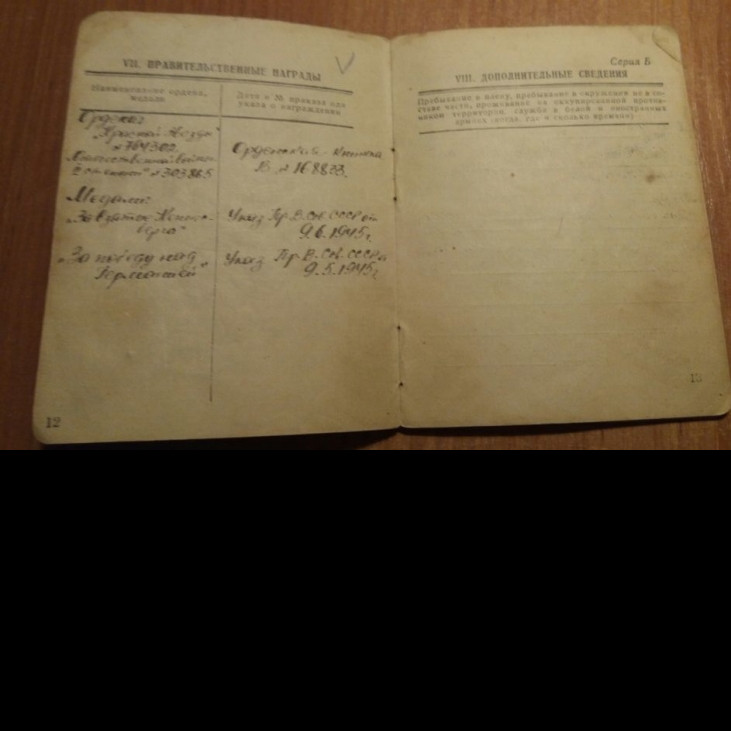 VII. ПРАВИТЕЛЬСТВЕННЫЕ НАГРАДЫ
Наименование ордена,
медали
Дата и № приказа или
указа о награждении
Ордена:
"Красной Звезды"
№ 764302.
Отечественной войны
2 степени" № 303865
Орденская книжка
В № 168823.
Медали:
"За взятие Кенигс-
берга"
Указ Пр.В.Св.СССР от
9.6.1945г.
"За победу над
Германией"
Указ Пр.В.Св.СССР от
9.5.1945г.
12
Серия Б
VIII. ДОПОЛНИТЕЛЬНЫЕ СВЕДЕНИЯ
Пребывание в плену, пребывание в окружении не в со-
ставе части, проживание на оккупированной против-
ником территории, служба в белой и иностранных
армиях (когда, где и сколько времени)
13